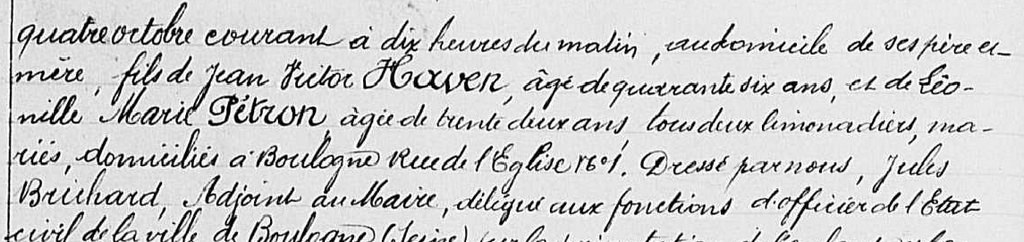 quatre octobre courant à dix heures du matin, au domicile de ses père et
mère, fils de Jean Victor Haven, âgé de quarante six ans, et de Léo-
nille Marie Pétron, âgée de trente deux ans, tous deux limonadiers, ma-
riés, domiciliés à Boulogne Rue de l'Eglise N° 1. Dressé par nous, Jules
Brichard, Adjoint au Maire, délégué aux fonctions d'officier de l'Etat
civil de la ville de Boulogne (Seine) sur la présentation de l'enfant